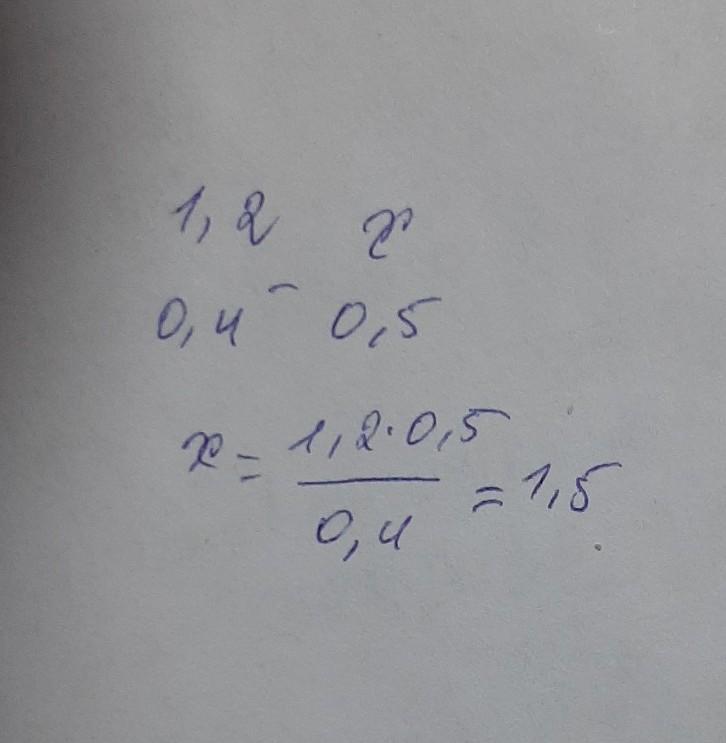 1,2 x
0,4 - 0,5
x = 1,2·0,5 / 0,4 = 1,5